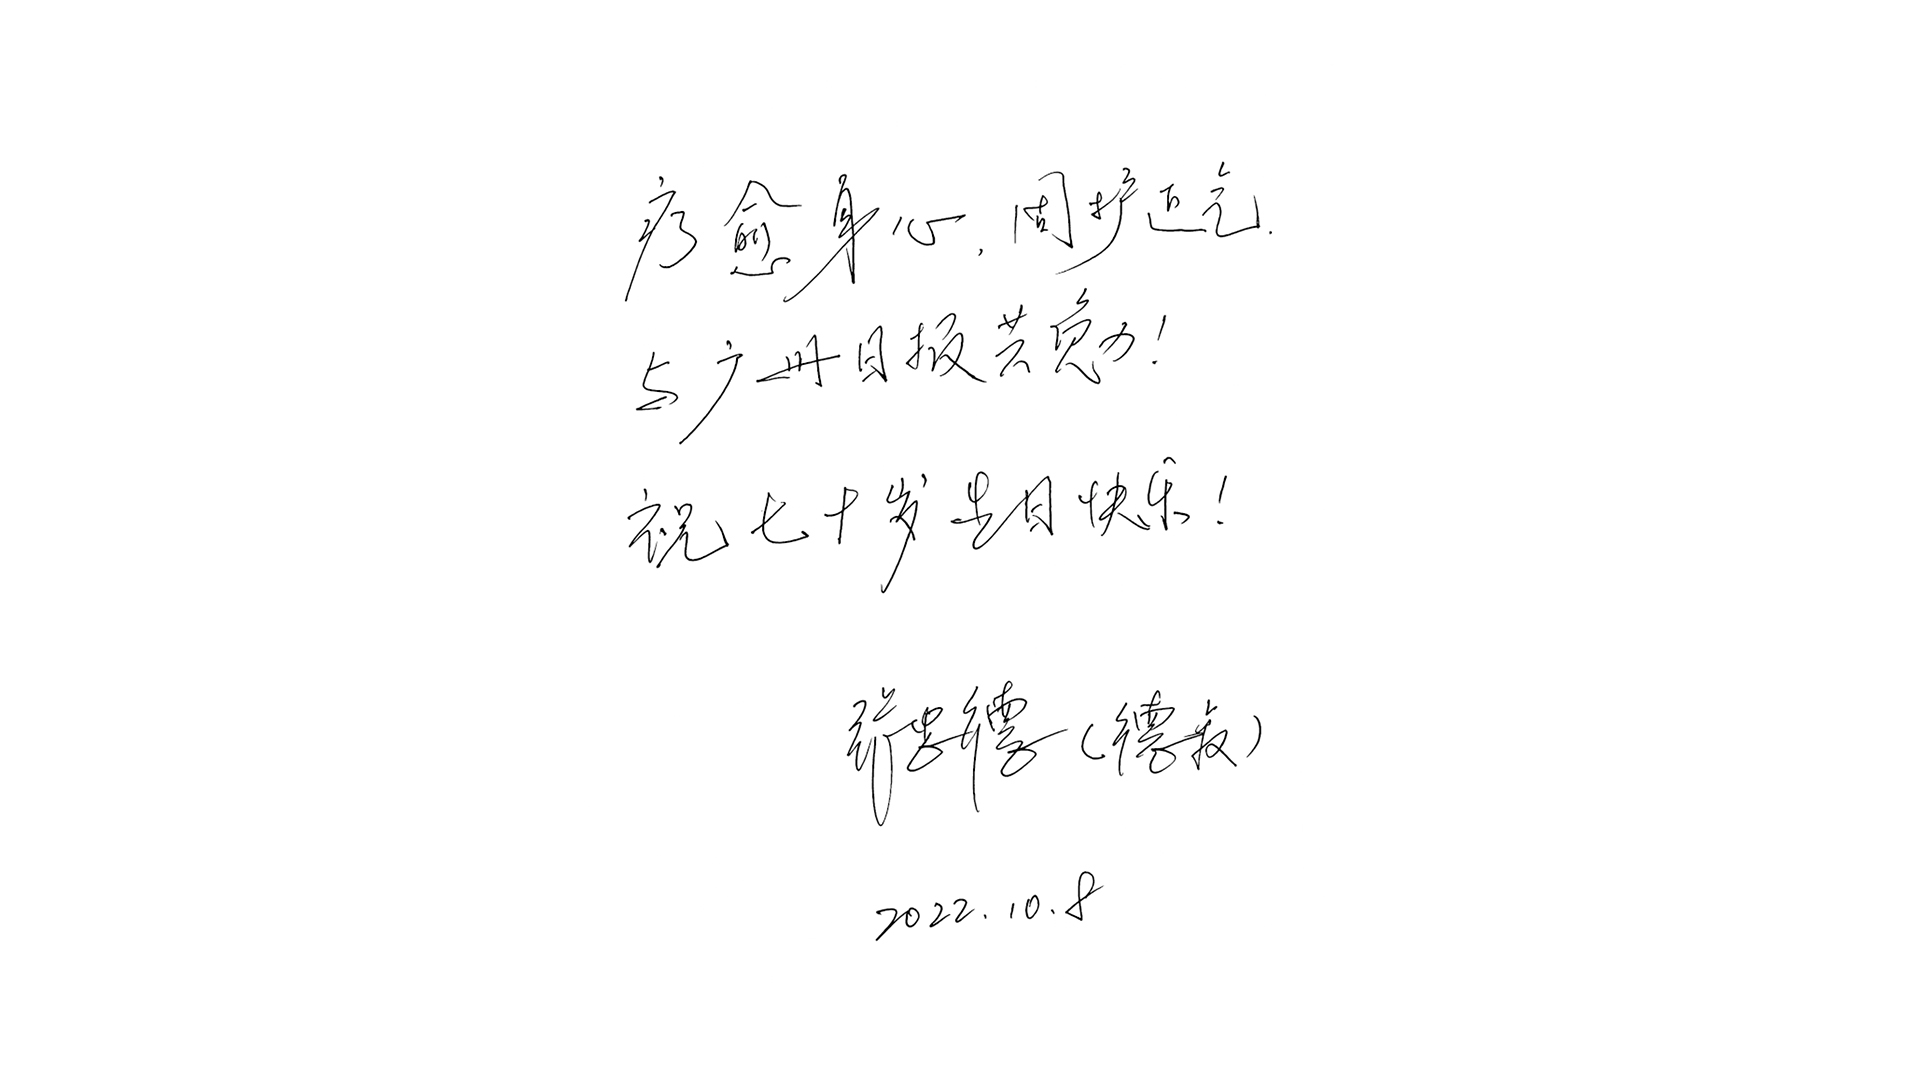 疗愈身心,固护正气.
与广州日报共勉!
祝七十岁生日快乐!
张忠德(德叔)
2022.10.8